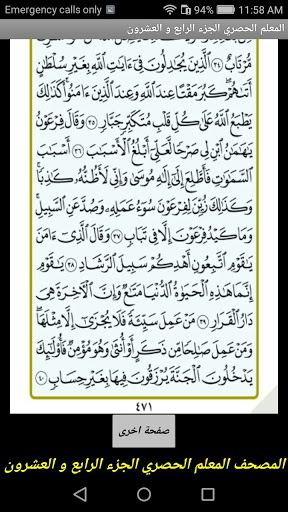 Emergency calls only 11:58 AM
المعلم الحصري الجزء الرابع و العشرون
مُّرْتَابٌ ٣٤ ٱلَّذِينَ يُجَٰدِلُونَ فِىٓ ءَايَٰتِ ٱللَّهِ بِغَيْرِ سُلْطَٰنٍ
أَتَىٰهُمْ كَبُرَ مَقْتًا عِندَ ٱللَّهِ وَعِندَ ٱلَّذِينَ ءَامَنُوا۟ كَذَٰلِكَ
يَطْبَعُ ٱللَّهُ عَلَىٰ كُلِّ قَلْبِ مُتَكَبِّرٍ جَبَّارٍ ٣٥ وَقَالَ فِرْعَوْنُ
يَٰهَٰمَٰنُ ٱبْنِ لِى صَرْحًا لَّعَلِّىٓ أَبْلُغُ ٱلْأَسْبَٰبَ ٣٦ أَسْبَٰبَ
ٱلسَّمَٰوَٰتِ فَأَطَّلِعَ إِلَىٰٓ إِلَٰهِ مُوسَىٰ وَإِنِّى لَأَظُنُّهُۥ كَٰذِبًا
وَكَذَٰلِكَ زُيِّنَ لِفِرْعَوْنَ سُوٓءُ عَمَلِهِۦ وَصُدَّ عَنِ ٱلسَّبِيلِ
وَمَا كَيْدُ فِرْعَوْنَ إِلَّا فِى تَبَابٍ ٣٧ وَقَالَ ٱلَّذِىٓ ءَامَنَ
يَٰقَوْمِ ٱتَّبِعُونِ أَهْدِكُمْ سَبِيلَ ٱلرَّشَادِ ٣٨ يَٰقَوْمِ
إِنَّمَا هَٰذِهِ ٱلْحَيَوٰةُ ٱلدُّنْيَا مَتَٰعٌ وَإِنَّ ٱلْءَاخِرَةَ هِىَ
دَارُ ٱلْقَرَارِ ٣٩ مَنْ عَمِلَ سَيِّئَةً فَلَا يُجْزَىٰٓ إِلَّا مِثْلَهَا
وَمَنْ عَمِلَ صَٰلِحًا مِّن ذَكَرٍ أَوْ أُنثَىٰ وَهُوَ مُؤْمِنٌ فَأُو۟لَٰٓئِكَ
يَدْخُلُونَ ٱلْجَنَّةَ يُرْزَقُونَ فِيهَا بِغَيْرِ حِسَابٍ ٤٠
٤٧١
صفحة اخرى
المصحف المعلم الحصري الجزء الرابع و العشرون